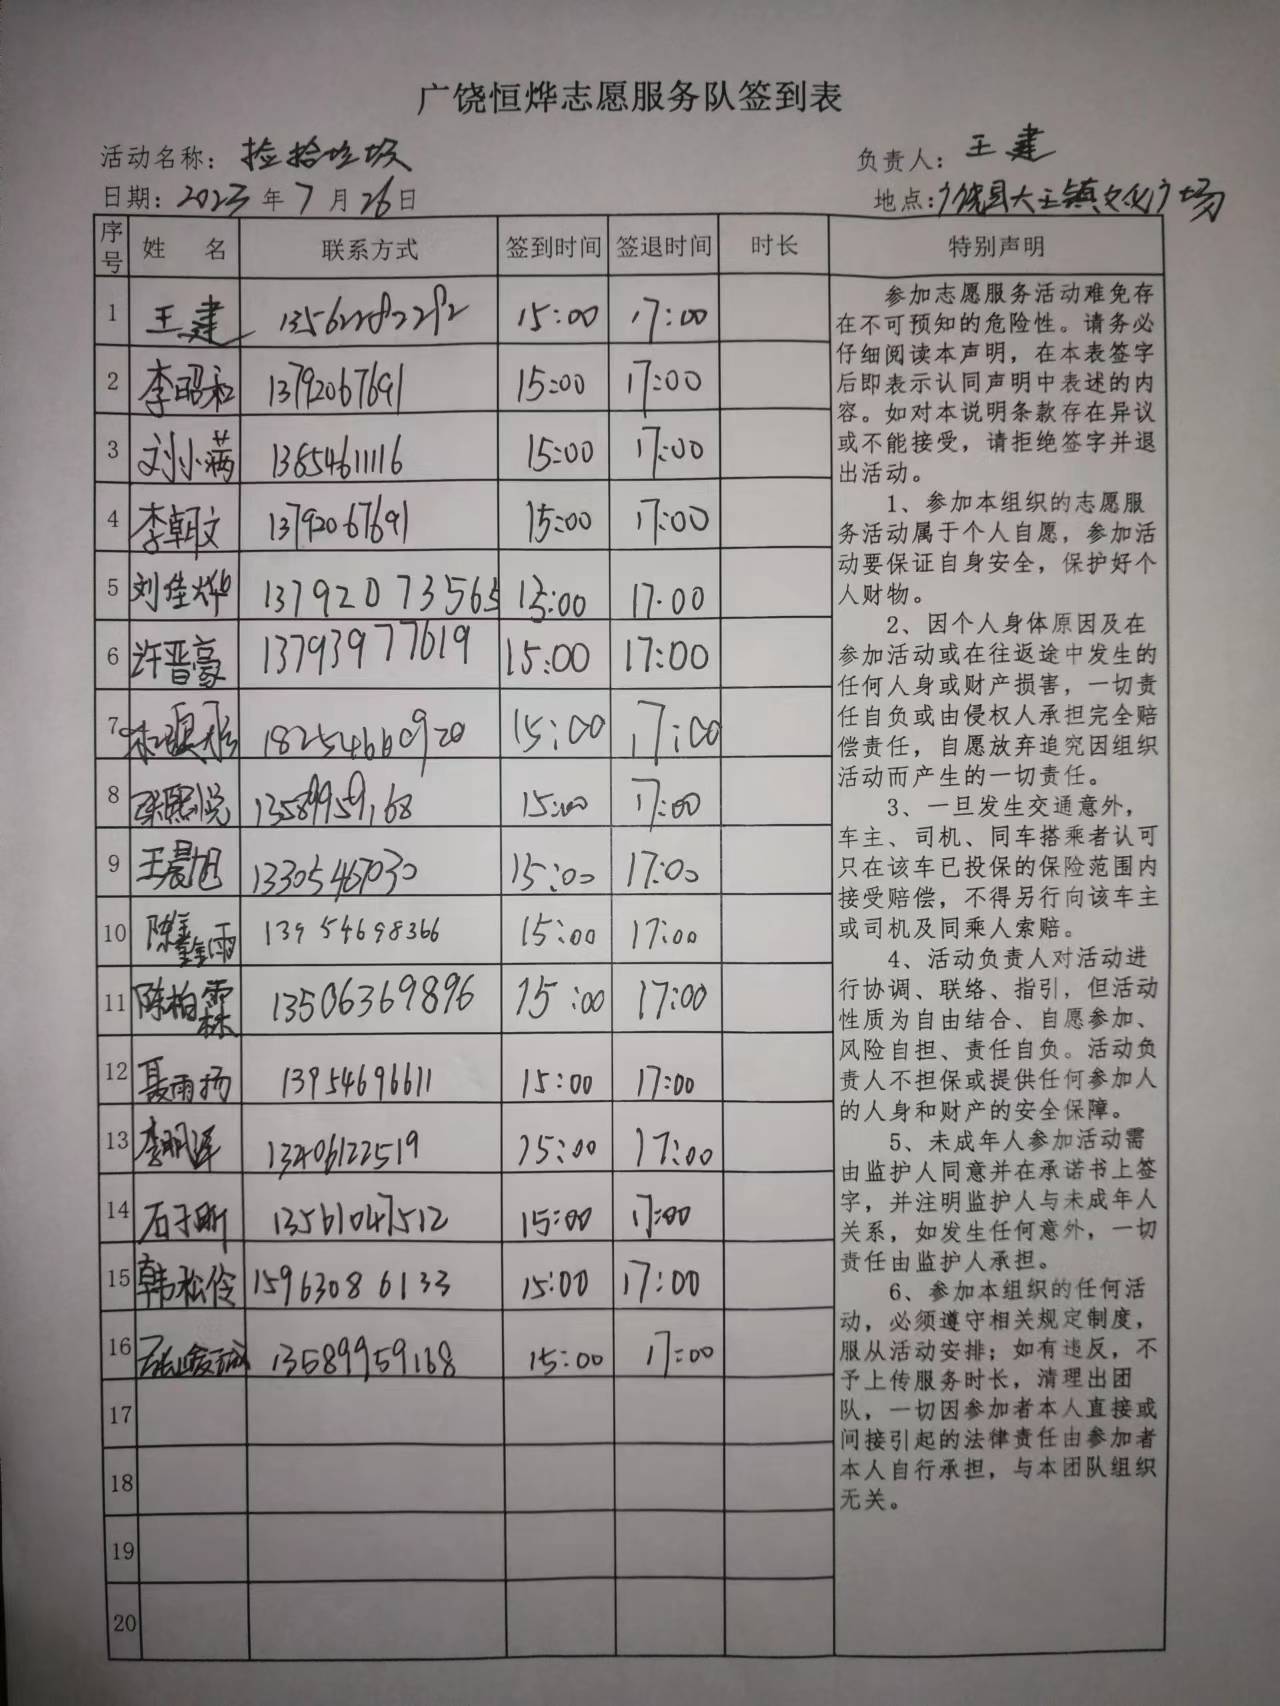 广饶恒烨志愿服务队签到表
活动名称：捡拾垃圾 负责人：王建
日期：2023年7月26日 地点：广饶县大王镇文化广场
序号 姓 名 联系方式 签到时间 签退时间 时长 特别声明
1 王建 15:00 17:00
2 李昭和 13792067691 15:00 17:00
3 刘小满 13854611116 15:00 17:00
4 李朝文 13792067691 15:00 17:00
5 刘佳烨 13792073565 15:00 17:00
6 许晋豪 13793977619 15:00 17:00
7 18254660920 15:00 17:00
8 13589959168 15:00 17:00
9 王晨旭 13305467030 15:00 17:00
10 13954698366 15:00 17:00
11 陈柏霖 13506369896 15:00 17:00
12 聂雨扬 13954696611 15:00 17:00
13 李明泽 13406122519 15:00 17:00
14 石子昕 13561047512 15:00 17:00
15 韩松伶 15963086133 15:00 17:00
16 13589959168 15:00 17:00
17
18
19
20
参加志愿服务活动难免存
在不可预知的危险性。请务必
仔细阅读本声明，在本表签字
后即表示认同声明中表述的内
容。如对本说明条款存在异议
或不能接受，请拒绝签字并退
出活动。
1、参加本组织的志愿服
务活动属于个人自愿，参加活
动要保证自身安全，保护好个
人财物。
2、因个人身体原因及在
参加活动或在往返途中发生的
任何人身或财产损害，一切责
任自负或由侵权人承担完全赔
偿责任，自愿放弃追究因组织
活动而产生的一切责任。
3、一旦发生交通意外，
车主、司机、同车搭乘者认可
只在该车已投保的保险范围内
接受赔偿，不得另行向该车主
或司机及同乘人索赔。
4、活动负责人对活动进
行协调、联络、指引，但活动
性质为自由结合、自愿参加、
风险自担、责任自负。活动负
责人不担保或提供任何参加人
的人身和财产的安全保障。
5、未成年人参加活动需
由监护人同意并在承诺书上签
字，并注明监护人与未成年人
关系，如发生任何意外，一切
责任由监护人承担。
6、参加本组织的任何活
动，必须遵守相关规定制度，
服从活动安排；如有违反，不
予上传服务时长，清理出团
队，一切因参加者本人直接或
间接引起的法律责任由参加者
本人自行承担，与本团队组织
无关。